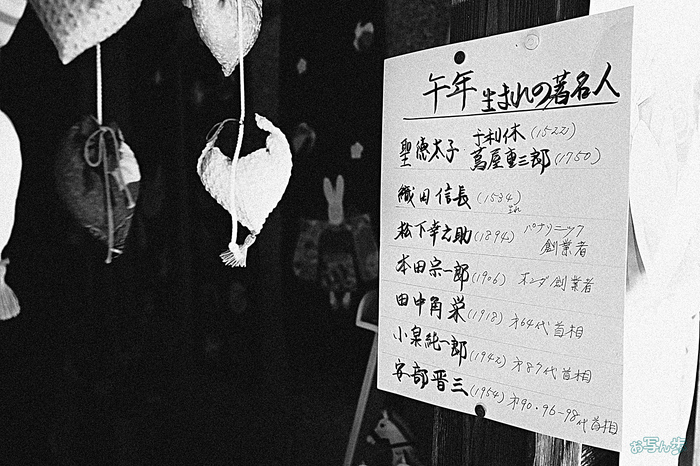 午年 生まれの著名人
聖徳太子 千利休 (1522)
蔦屋重三郎 (1750)
織田信長 (1534)
生れ
松下幸之助 (1894) パナソニック
創業者
本田宗一郎 (1906) ホンダ創業者
田中角栄 (1918) 才64代首相
小泉純一郎 (1942) 才87代首相
安部晋三 (1954) 才90・96-98
代首相
お写ん歩